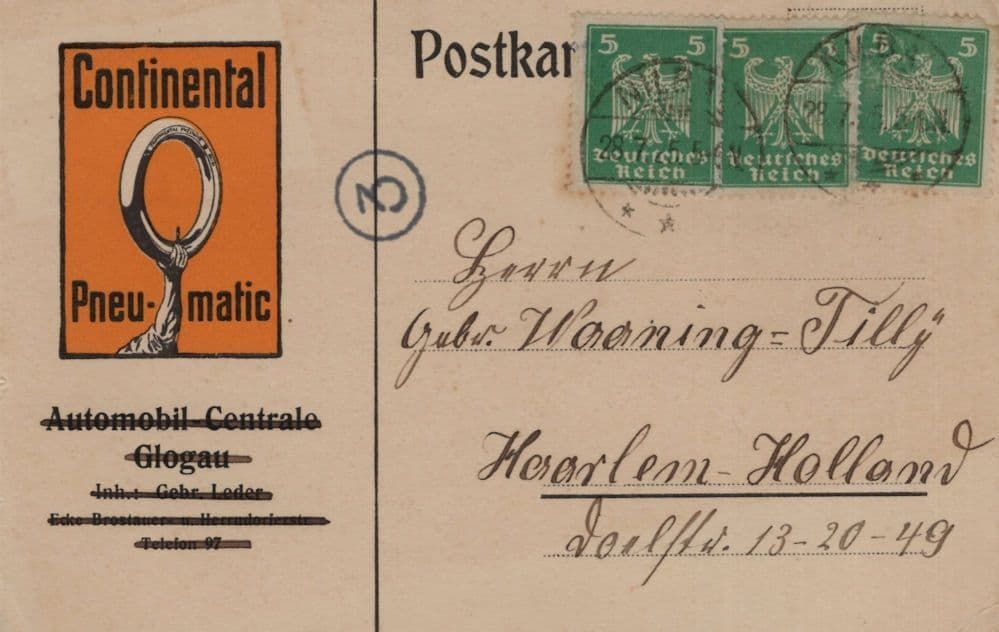 Continental
Pneu-matic
Automobil-Centrale
Glogau
Inh.: Gebr. Leder
Ecke Brostauer- u. Herrndorferstr.
Telefon 97
Postkar
5 5
Deutsches
Reich
5
Deutsches
Reich
5 5
Deutsches
Reich
3
Herrn
Gebr. Waaning-Tilly
Haarlem-Holland
Doelstr. 13-20-49